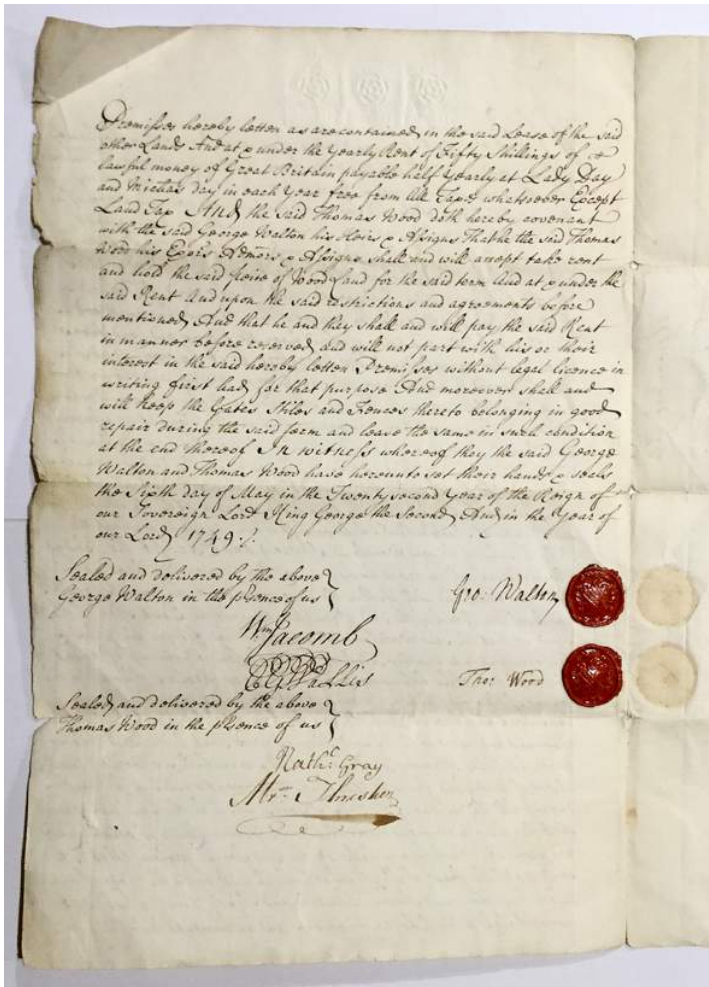 Premisses hereby letten as are contained in the said Lease of the said
other Lands And at & under the Yearly Rent of Fifty Shillings of
lawful money of Great Britain payable half Yearly at Lady Day
and Michas day in each Year free from all Taxes whatsoever Except
Land Tax And the said Thomas Wood doth hereby covenant
with the said George Walton his Heirs & Assigns That he the said Thomas
Wood his Exors Admors & Assigns shall and will accept take rent
and hold the said peice of Wood Land for the said term And at & under the
said Rent And upon the said restrictions and agreements before
mentioned And that he and they shall and will pay the said Rent
in manner before reserved and will not part with his or their
interest in the said hereby letten Premisses without legal licence in
writing first had for that purpose And moreover shall and
will keep the Gates Stiles and Fences thereto belonging in good
repair during the said term and leave the same in such condition
at the end thereof In witness whereof they the said George
Walton and Thomas Wood have hereunto set their hands & seals
the Sixth day of May in the Twenty second Year of the Reign of
our Sovereign Lord King George the Second And in the Year of
our Lord 1749
Sealed and delivered by the above
George Walton in the psence of us
Geo: Walton
Wm Jacomb
Wallis
Tho: Wood
Sealed and delivered by the above
Thomas Wood in the psence of us
Nathl Gray